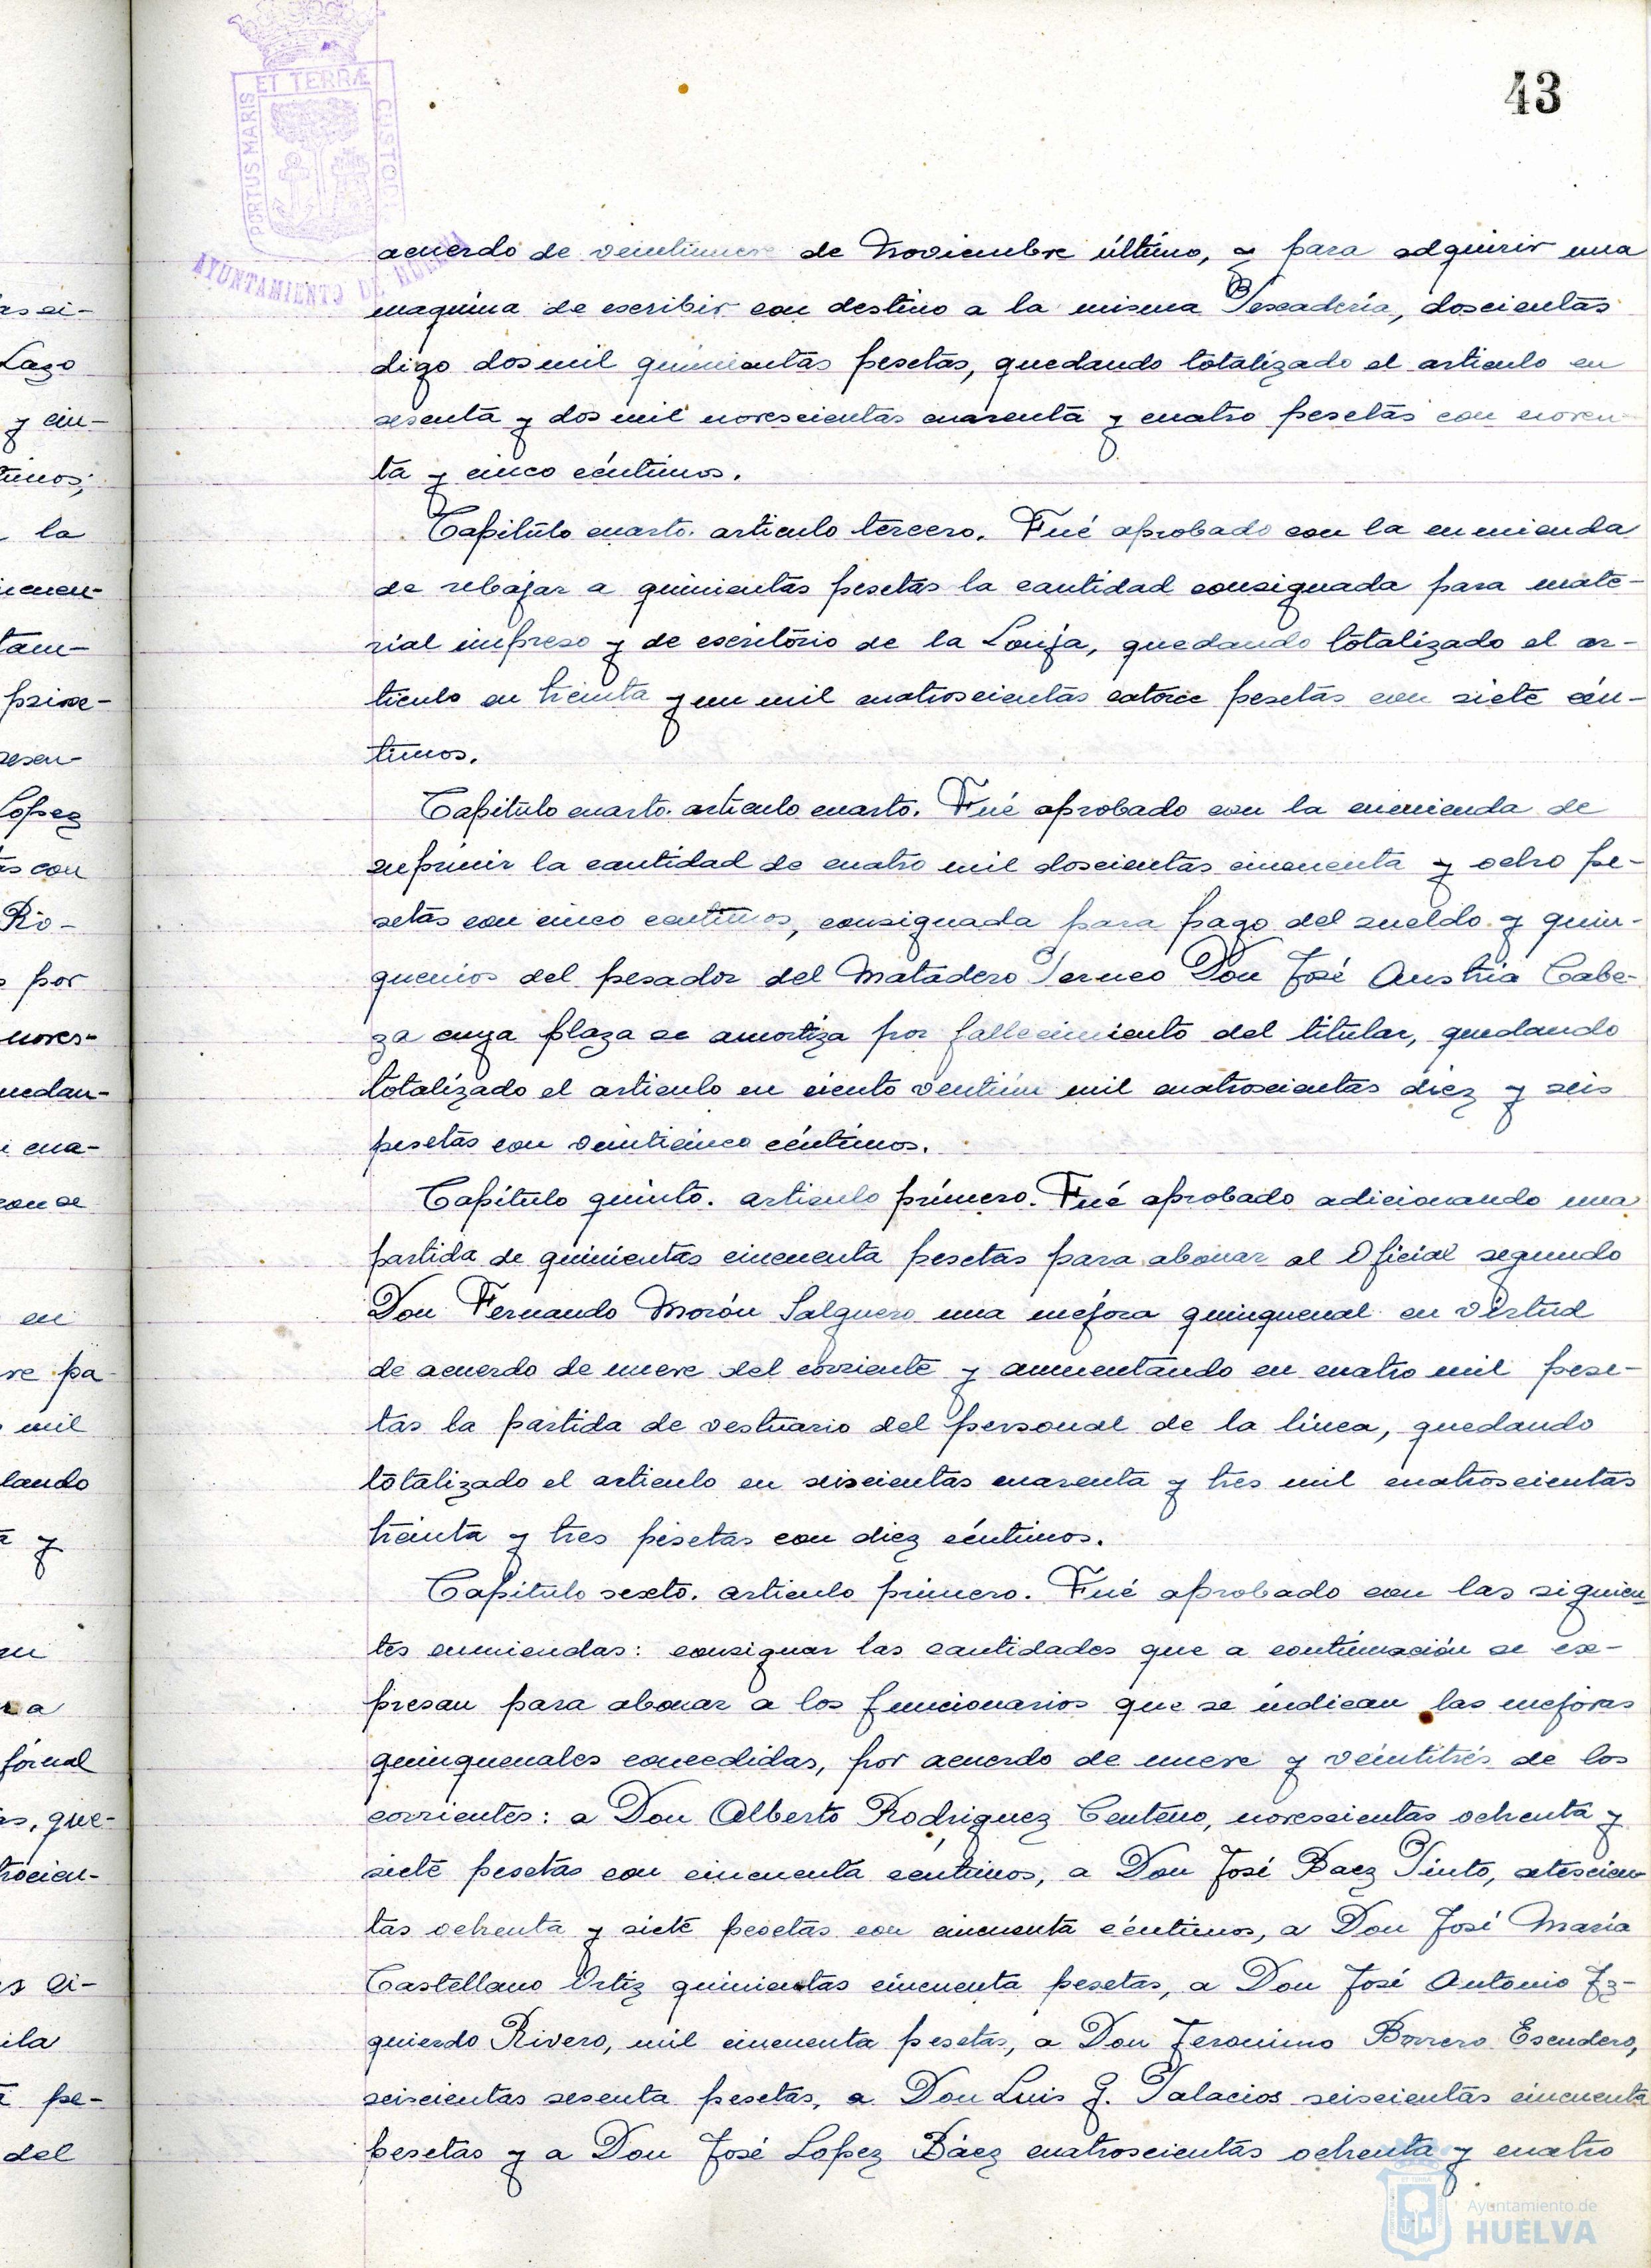 43
PORTUS MARIS ET TERRÆ CUSTODIA
AYUNTAMIENTO DE HUELVA
as ci-
Lazo
y cin-
timos;
la
tam-
Lopez
as con
Rio-
s por
noves-
uedan-
cua-
con se
en
ve pa-
mil
lando
y
ra
jornal
as, que-
trocien-
pe-
del
acuerdo de veintinueve de Noviembre último, y para adquirir una
maquina de escribir con destino a la misma Pescadería, doscientas
digo dos mil quinientas pesetas, quedando totalizado el articulo en
sesenta y dos mil novescientas cuarenta y cuatro pesetas con noven
ta y cinco céntimos.
Capitulo cuarto. articulo tercero. Fué aprobado con la enmienda
de rebajar a quinientas pesetas la cantidad consignada para mate-
rial impreso y de escritorio de la Lonja, quedando totalizado el ar-
ticulo en treinta y un mil cuatroscientas catorce pesetas con siete cén-
timos.
Capitulo cuarto. articulo cuarto. Fué aprobado con la enmienda de
suprimir la cantidad de cuatro mil doscientas cincuenta y ocho pe-
setas con cinco centimos, consignada para pago del sueldo y quin-
quenios del pesador del Matadero Perneo Don José Austria Cabe-
za cuya plaza se amortiza por fallecimiento del titular, quedando
totalizado el articulo en ciento ventiún mil cuatroscientas diez y seis
pesetas con veinticinco céntimos.
Capítulo quinto. articulo primero. Fué aprobado adicionando una
partida de quinientas cincuenta pesetas para abonar al Oficial segundo
Don Fernando Morón Salguero una mejora quinquenal en virtud
de acuerdo de nueve del corriente y aumentando en cuatro mil pese-
tas la partida de vestuario del personal de la línea, quedando
totalizado el articulo en seiscientas cuarenta y tres mil cuatroscientas
treinta y tres pesetas con diez céntimos.
Capitulo sexto. articulo primero. Fué aprobado con las siguien
tes enmiendas: consignar las cantidades que a continuación se ex-
presan para abonar a los funcionarios que se indican las mejoras
quinquenales concedidas, por acuerdo de nueve y veintitrés de los
corrientes: a Don Alberto Rodriguez Centeno, novescientas ochenta y
siete pesetas con cincuenta centimos, a Don José Baez Pinto, setescien
tas ochenta y siete pesetas con cincuenta céntimos, a Don José María
Castellano Ortiz quinientas cincuenta pesetas, a Don José Antonio Iz-
quierdo Rivero, mil cincuenta pesetas, a Don Jeronimo Borrero Escudero,
seiscientas sesenta pesetas, a Don Luis G. Palacios seiscientas cincuenta
pesetas y a Don José Lopez Báez cuatroscientas ochenta y cuatro
Ayuntamiento de
HUELVA